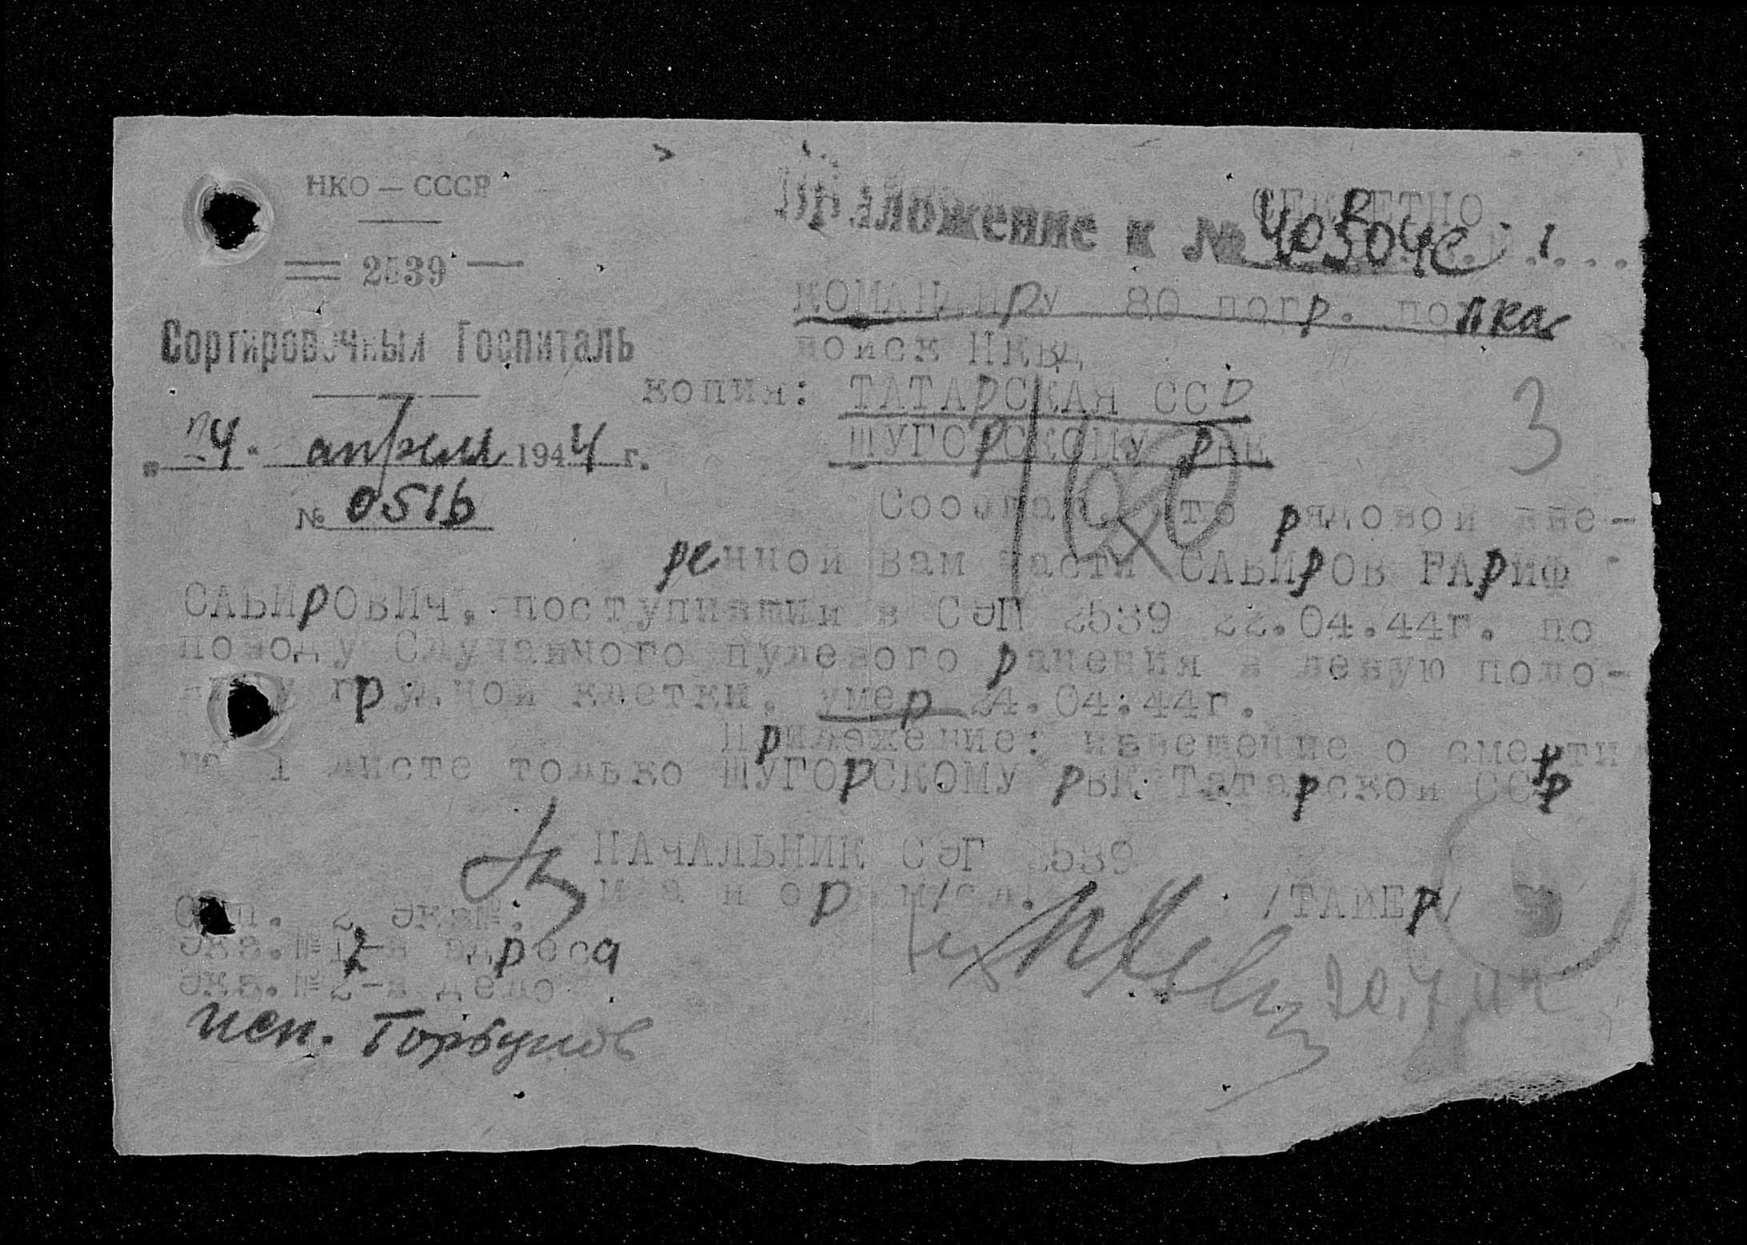 НКО – СССР
2539
Сортировочный Госпиталь
"24" апреля 1944 г.
№ 0516
СЕКРЕТНО
Приложение к № 40304с
1
КОМАНДИРУ 80 погр. полка
войск НКВД
копия: ТАТАРСКАЯ ССР
ШУГОРСКОМУ РВК
3
Сообщаю, что рядовой вве-
ренной вам части САБИРОВ ГАРИФ
САБИРОВИЧ, поступивший в СЭГ 2539 22.04.44г. по
поводу Случайного пулевого ранения в левую поло-
вину грудной клетки, умер 24.04.44г.
Приложение: извещение о смерти
на 1 листе только ШУГОРСКОМУ РВК Татарской ССР
НАЧАЛЬНИК СЭГ 2539
майор м/сл. /ТАБЕР/
Отп. 2 экз.
Экз.№1-в адреса
Экз.№2-в дело
исп. Горбунов